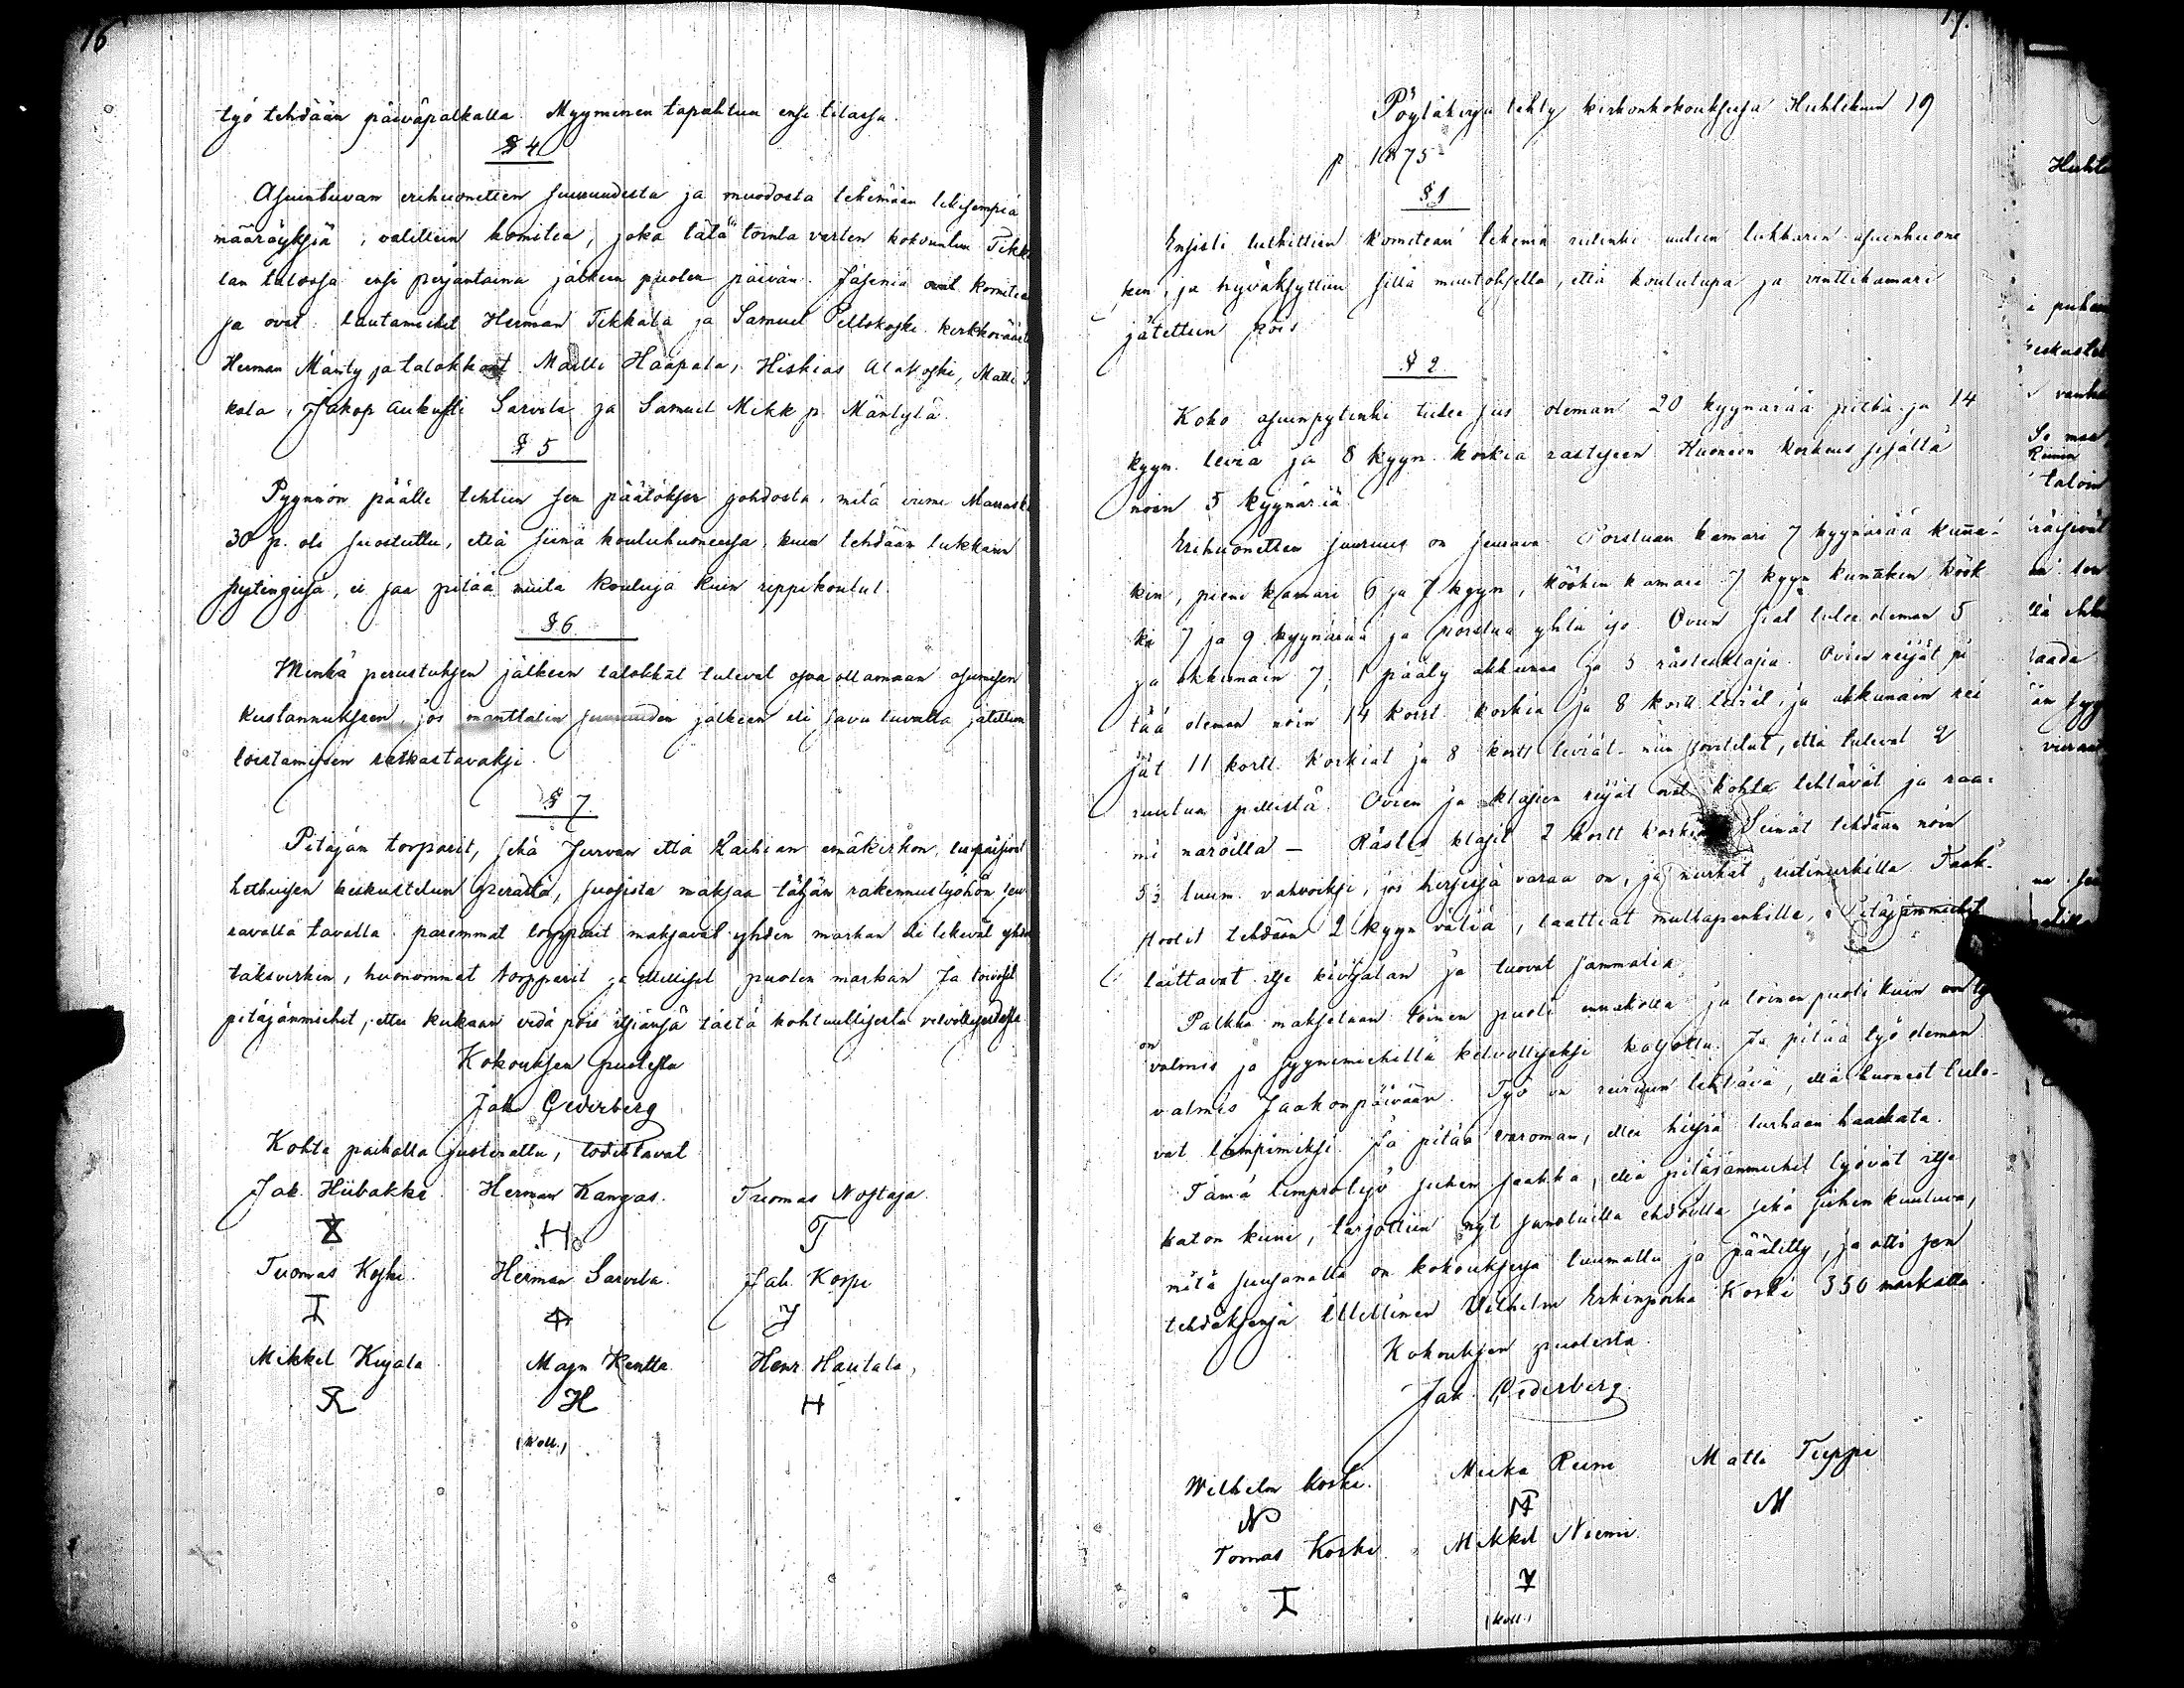 16
työ tehdään päiväpalkalla. Myyminen tapahtuu ensi tilassa.
§ 4
Asuintuvan erihuonetten suuruudesta ja muodosta tekemään
määräyksiä, valittiin komitea, joka tätä tointa varten kokountuu Tikka
lan talossa ensi perjantaina jälkeen puolen päivän. Jäseniä komitea
sa ovat: Lautamiehet Herman Tikkala ja Samuel Pellokoski kirkkovää
Herman Mänty ja talokkaat Matti Haapala, Hiskias Alakoski, Matti
kala, Jakop Aukusti Sarvela ja Samuel Mikk p. Mäntylä.
§ 5
Pyynnön päälle tehtiin sen päätöksen johdosta, mitä viime Marrask
30 p. oli suostuttu, että siinä kouluhuoneessa, kuin tehdään lukkarin
pytingissä, ei saa pitää muita kouluja kuin rippikoulut.
§ 6.
Minkä perustuksen jälkeen talokkat tulevat osaa ottamaan asumisen
kustannukseen, jos manttalin suuruuden jälkeen eli savu luvulta jätettiin
toistamiseen ratkastavaksi.
§ 7.
Pitäjän torparit, sekä Jurvan että Laihian emäkirkon,
keskustelun perästä, suosista maksaa tähän rakennustyöhön seu
ravalla tavalla: paremmat torpparit maksavat yhden markan eli tekevät yhden
taksverkin, huonommat torpparit ja itelliset puolen markan Ja toivosit
pitäjänmiehet, ettei kukaan vedä pois itsiänsä tästä kohtuullisesta velvollisuudesta
Kokouksen puolesta
Jak Cederberg
Kohta paikalla justerattu, todistavat
Jak. Hiibakka. Herman Kangas. Tuomas Nostaja.
H T
Tuomas Koski. Herman Sarvela. Jak. Korpi
I J
Mikkel Kujala Magn Kentta Henr. Hautala,
H H
(Koll.)
17.
Pöytäkirja tehty kirkonkokouksessa Huhtikuun 19
p 1875
§ 1
Ensisti luettiin komitean tekemä ritinki uuteen lukkarin asuinhuone
seen, ja hyväksyttiin sillä muutoksella, että koulutupa ja vinttikamari
jätettiin pois
§ 2.
Koko asuinpytinki tulee siis oleman 20 kyynärää pitkä ja 14
kyyn. leviä ja 8 kyyn. korkia rästeseen Huoneen korkeus sisältä
noin 5 kyynäriä
Erihuonetten suuruus on seurava Porstuan kamari 7 kyynärää kuna-
kin, pieni kamari 6 ja 7 kyyn, köökin kamari 7 kyyn kunakin, köök
ki 7 ja 9 kyynärää ja porstua yhtä iso. Ovien siat tulee oleman 5
ja akkunain 7, 1 pääly akkunaa ja 3 rästesklasia. Ovien reijät pi
tää oleman noin 14 kortt. korkia ja 8 kortt leviät, ja akkunain rei
jät 11 kortt korkiat ja 8 kortt leviät niin sovitetut, että tulevat 2
ruutua pillistä. Ovien ja klasien reijät ovat kohta tehtävät ja raa-
mi naroilla — Rästes klasit 2 kortt korkiat Seinät tehdään noin
5½ tuum. vahvoiksi, jos hirsissä varaa on, ja nurkat ristinurkilla Taak-
stoolit tehdään 2 kyyn väliä, laattiat multapenkille, Pitäjänmiehet
laittavat itse kivijalan ja tuovat sammalia
Palkka maksetaan toinen puoli ennakolla ja toinen puoli kuin työ
on
valmis ja syynimiehiltä kelvolliseksi katsottu Ja pitää työ oleman
valmis Jaakonpäivään. Työ on niin tehtävä, että huoneet tule-
vat lämpimiksi. Ja pitää varoman, ettei hirsiä turhaan haaskata.
Tämä timprotyö siihen saakka, että pitäjänmiehet lyövät itse
katon kiini, tarjottiin nyt sanotuilla ehdoilla sekä siihen kuuluva,
mitä suusanalla on kokouksessa luvattu ja päätetty, ja otti sen
tehdäksensä itellinen Vilhelm Erkinpoika Koski 350 markalla
Kokouksen puolesta.
Jak. Cederberg.
Wilhelm Koski. Miika Rimi Matti Tuppi
M
Tomas Koski. Mikkel Niemi.
I
(Koll.)